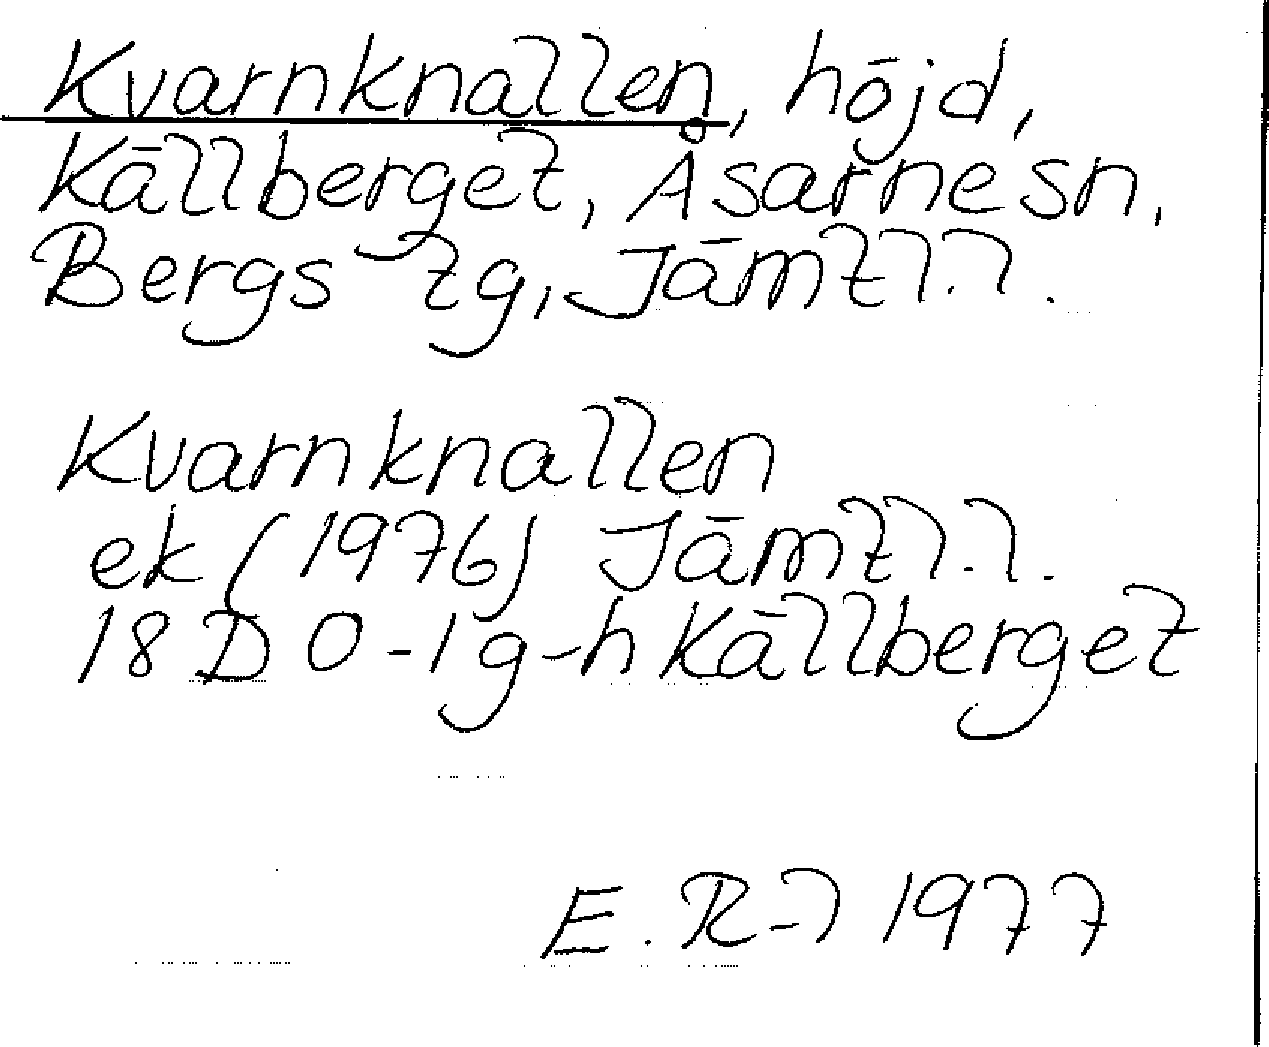 Kvarnknallen, höjd,
Källberget, Åsarne sn,
Bergs tg, Jämtl.l.
Kvarnknallen
ek (1976) Jämtl.l.
18D 0-1 g-h Källberget
E. R-l 1977